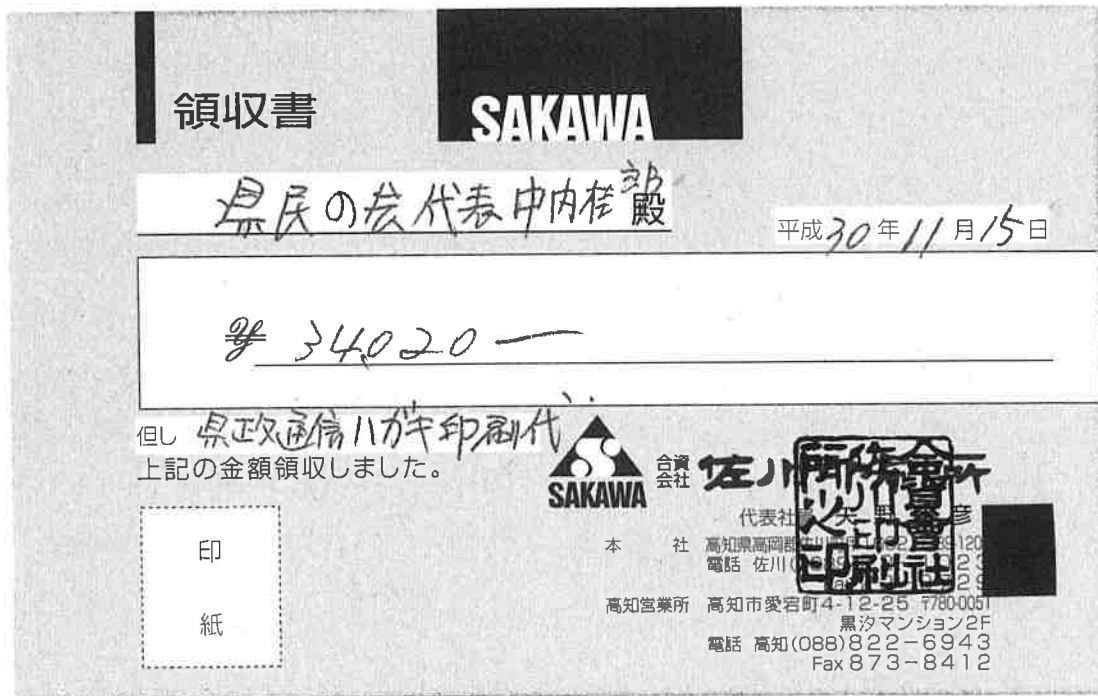 領収書
SAKAWA
県民の会代表中内桂郎殿
平成30年11月15日
¥ 34,020—
但し 県政通信ハガキ印刷代
上記の金額領収しました。
SAKAWA
合資会社 佐川印刷所
合資會社佐川印刷所之印
代表社 矢野 彦
本 社 高知県高岡郡佐川
電話 佐川
高知営業所 高知市愛宕町4-12-25 〒780-0051
黒汐マンション2F
電話 高知(088)822-6943
Fax 873-8412
印紙